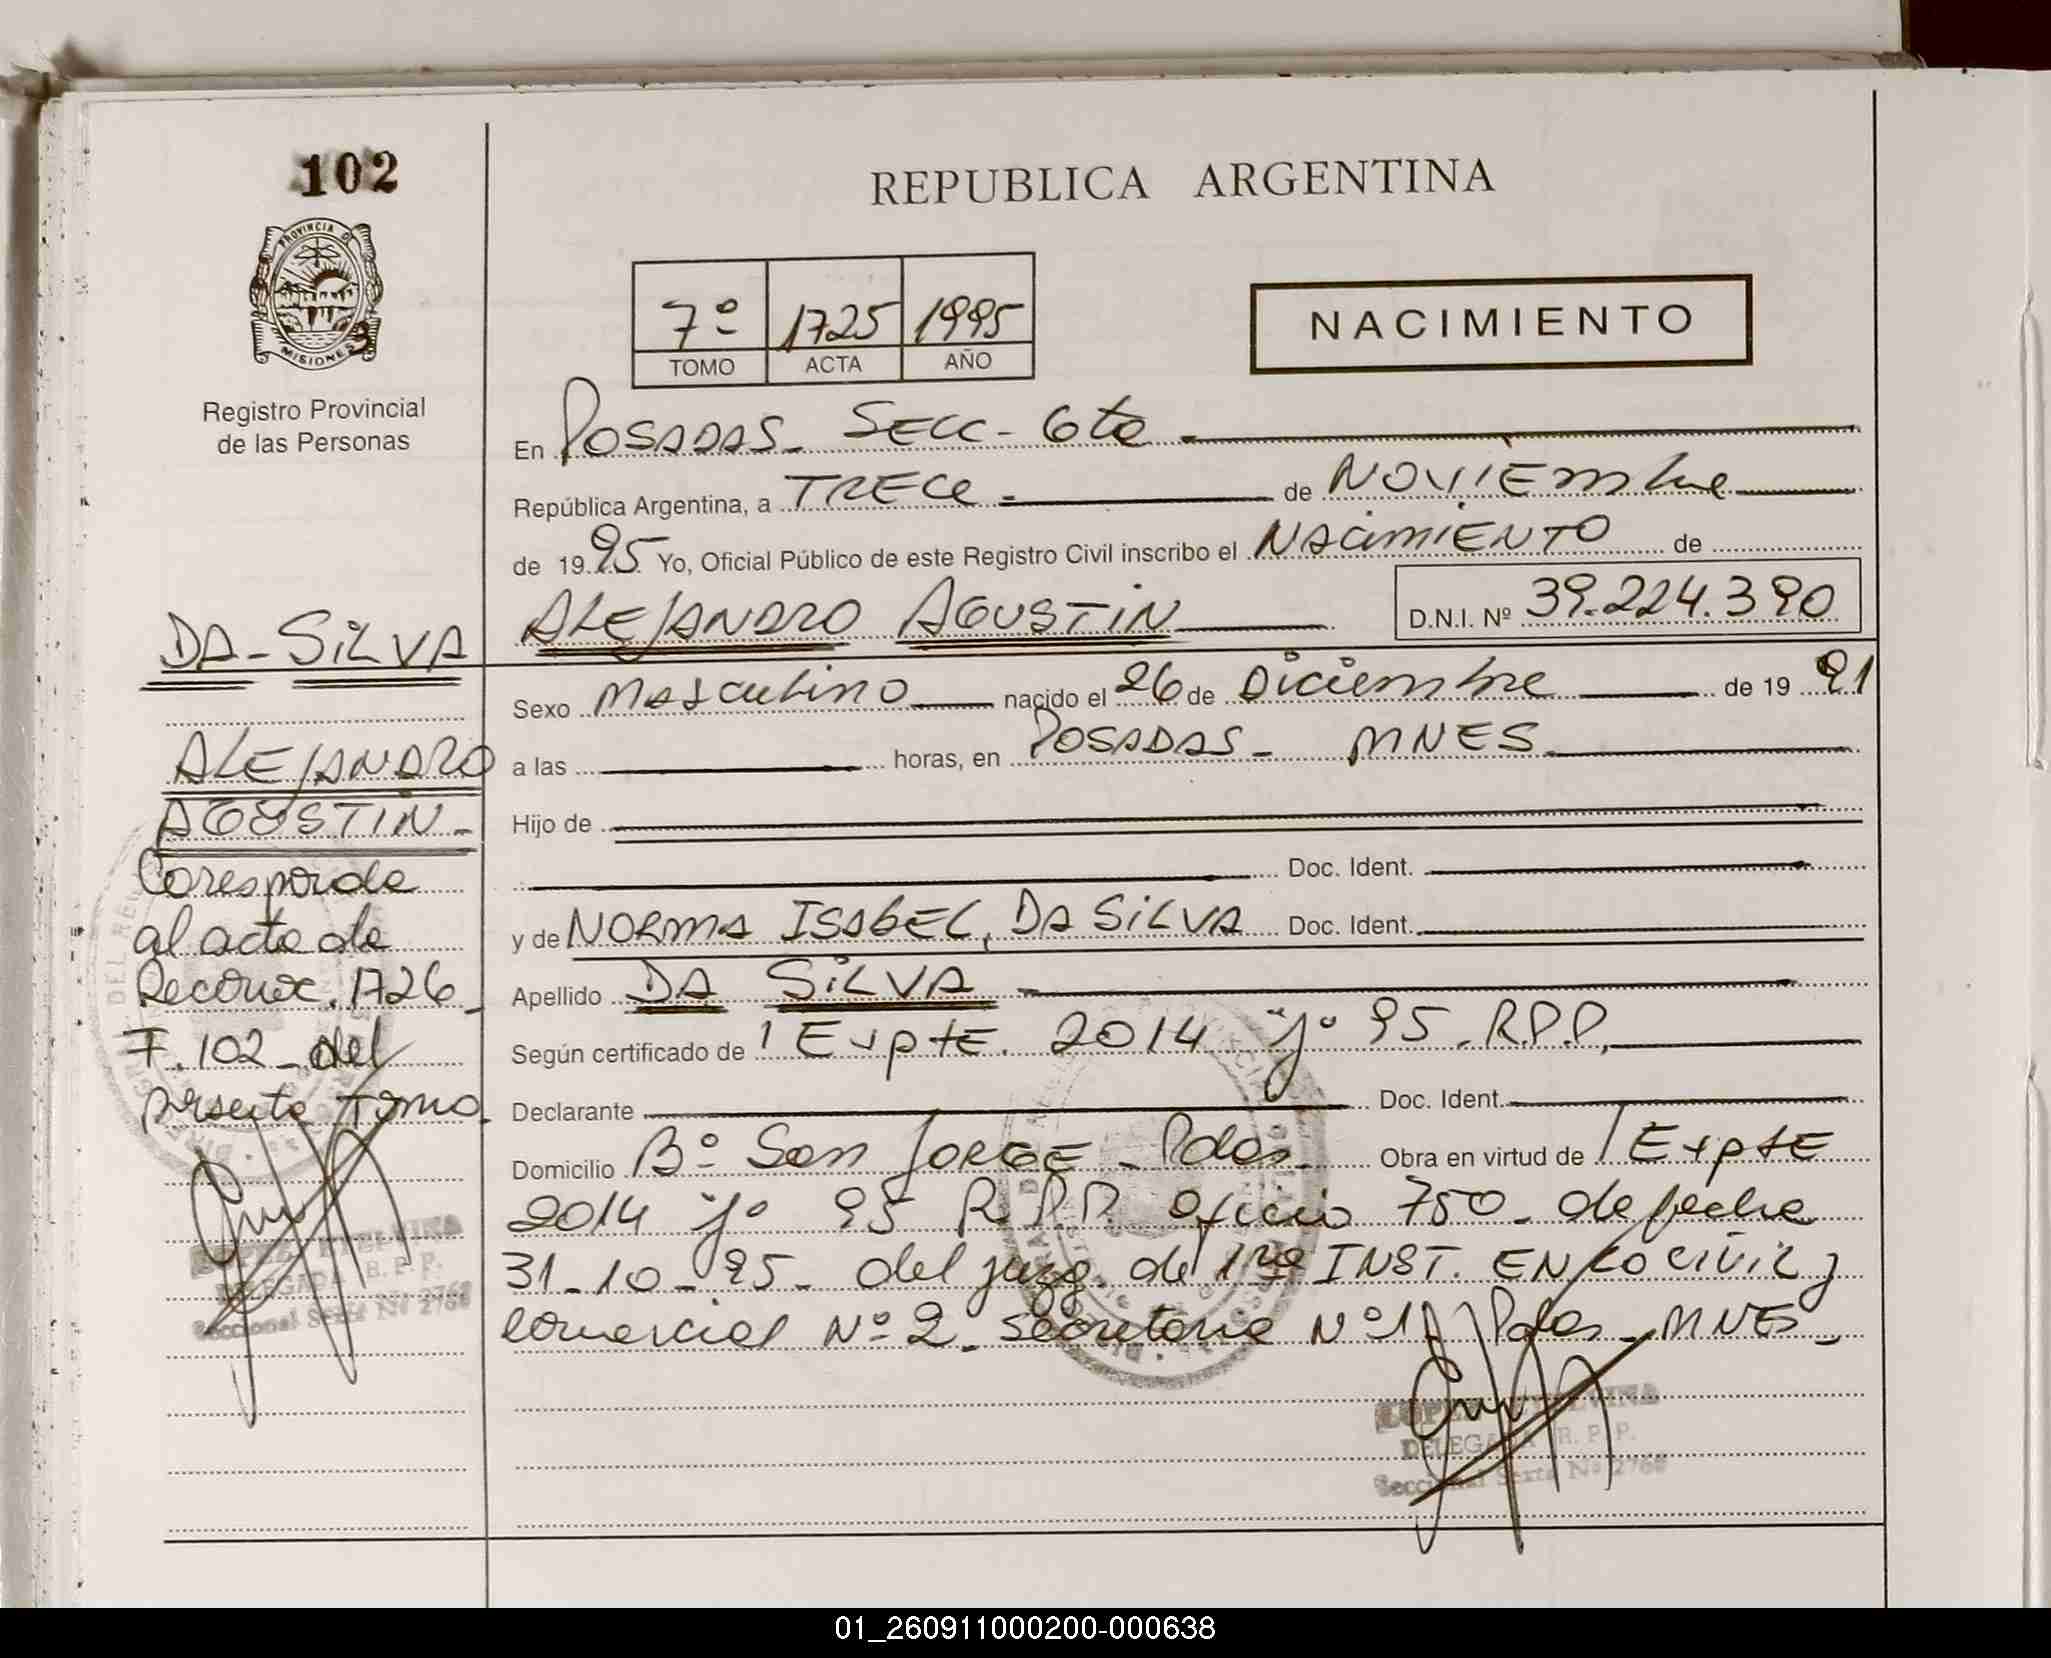 102
PROVINCIA D
MISIONES
Registro Provincial
de las Personas
REPUBLICA ARGENTINA
7º 1725 1995
TOMO ACTA AÑO
NACIMIENTO
En POSADAS - SECC - 6ta
República Argentina, a TRECE de NOVIEMBRE
de 1995 Yo, Oficial Público de este Registro Civil inscribo el NACIMIENTO de
ALEJANDRO AGUSTIN D.N.I. Nº 39.224.390
Sexo Masculino nacido el 26 de Diciembre de 1991
a las horas, en POSADAS - MNES
Hijo de
Doc. Ident.
y de NORMA ISABEL, DA SILVA Doc. Ident.
Apellido DA SILVA
Según certificado de Expte. 2014 "J" 95. R.P.P.
Declarante Doc. Ident.
Domicilio Bº San JORGE - Pdas - Obra en virtud de Expte
2014 "J" 95 R.P.P. oficio 750 - de fecha
31-10-95 - del juzg. de 1ra INST. EN LO CIVIL y
comercial Nº 2 - secretaria Nº 1 Pdas - MNES -
DELEGADA R. P. P.
Seccional Sexta Nº 2768
DA - SILVA
ALEJANDRO
AGUSTIN -
Coresponde
al acta de
Reconoc. 1726 -
F. 102 - del
presente Tomo.
DELEGADA R. P. P.
Seccional Sexta Nº 2768
01_260911000200-000638